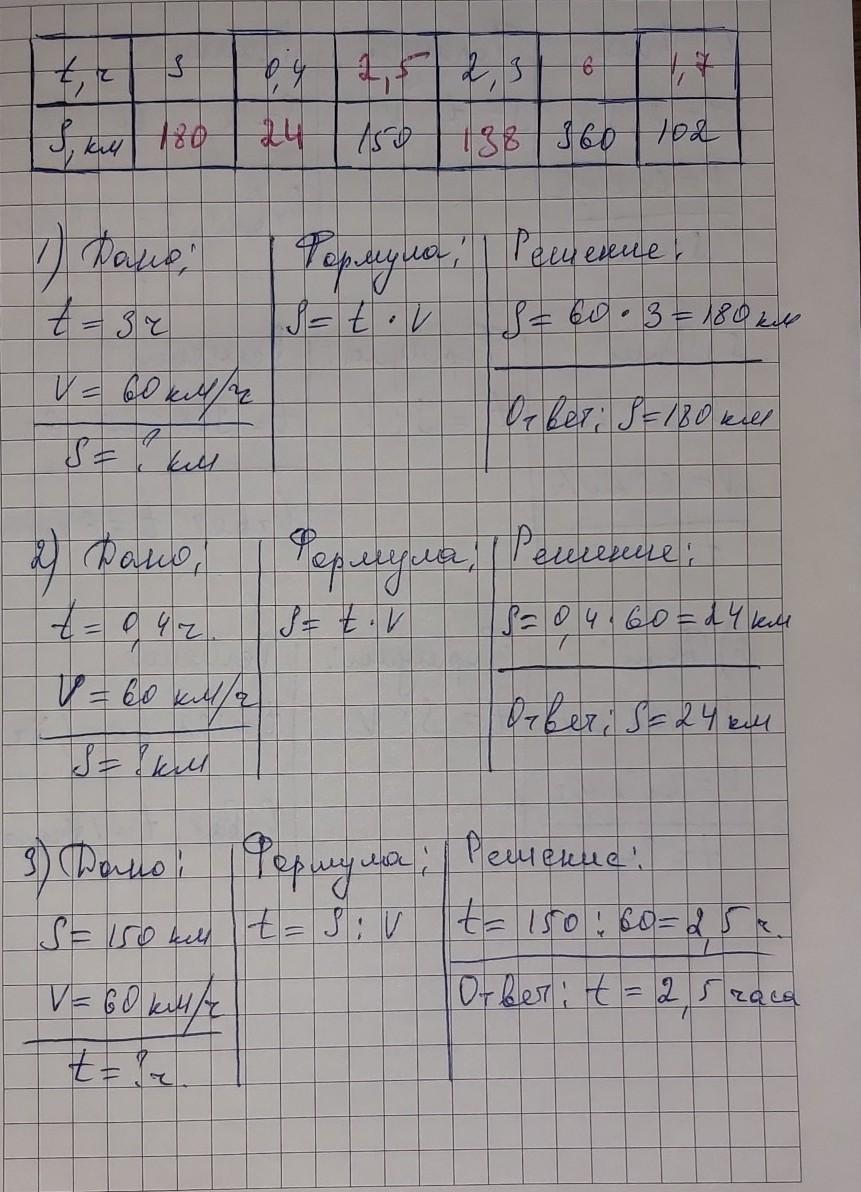 t, ч 3 0,4 2,5 2,3 6 1,7
S, км 180 24 150 138 360 102
1) Дано: Формула: Решение:
t = 3 ч S = t · V S = 60 · 3 = 180 км
V = 60 км/ч
S = ? км Ответ: S = 180 км
2) Дано: Формула: Решение:
t = 0,4 ч. S = t · V S = 0,4 · 60 = 24 км
V = 60 км/ч
S = ? км Ответ: S = 24 км
3) Дано: Формула: Решение:
S = 150 км t = S : V t = 150 : 60 = 2,5 ч.
V = 60 км/ч Ответ: t = 2,5 часа
t = ? ч.